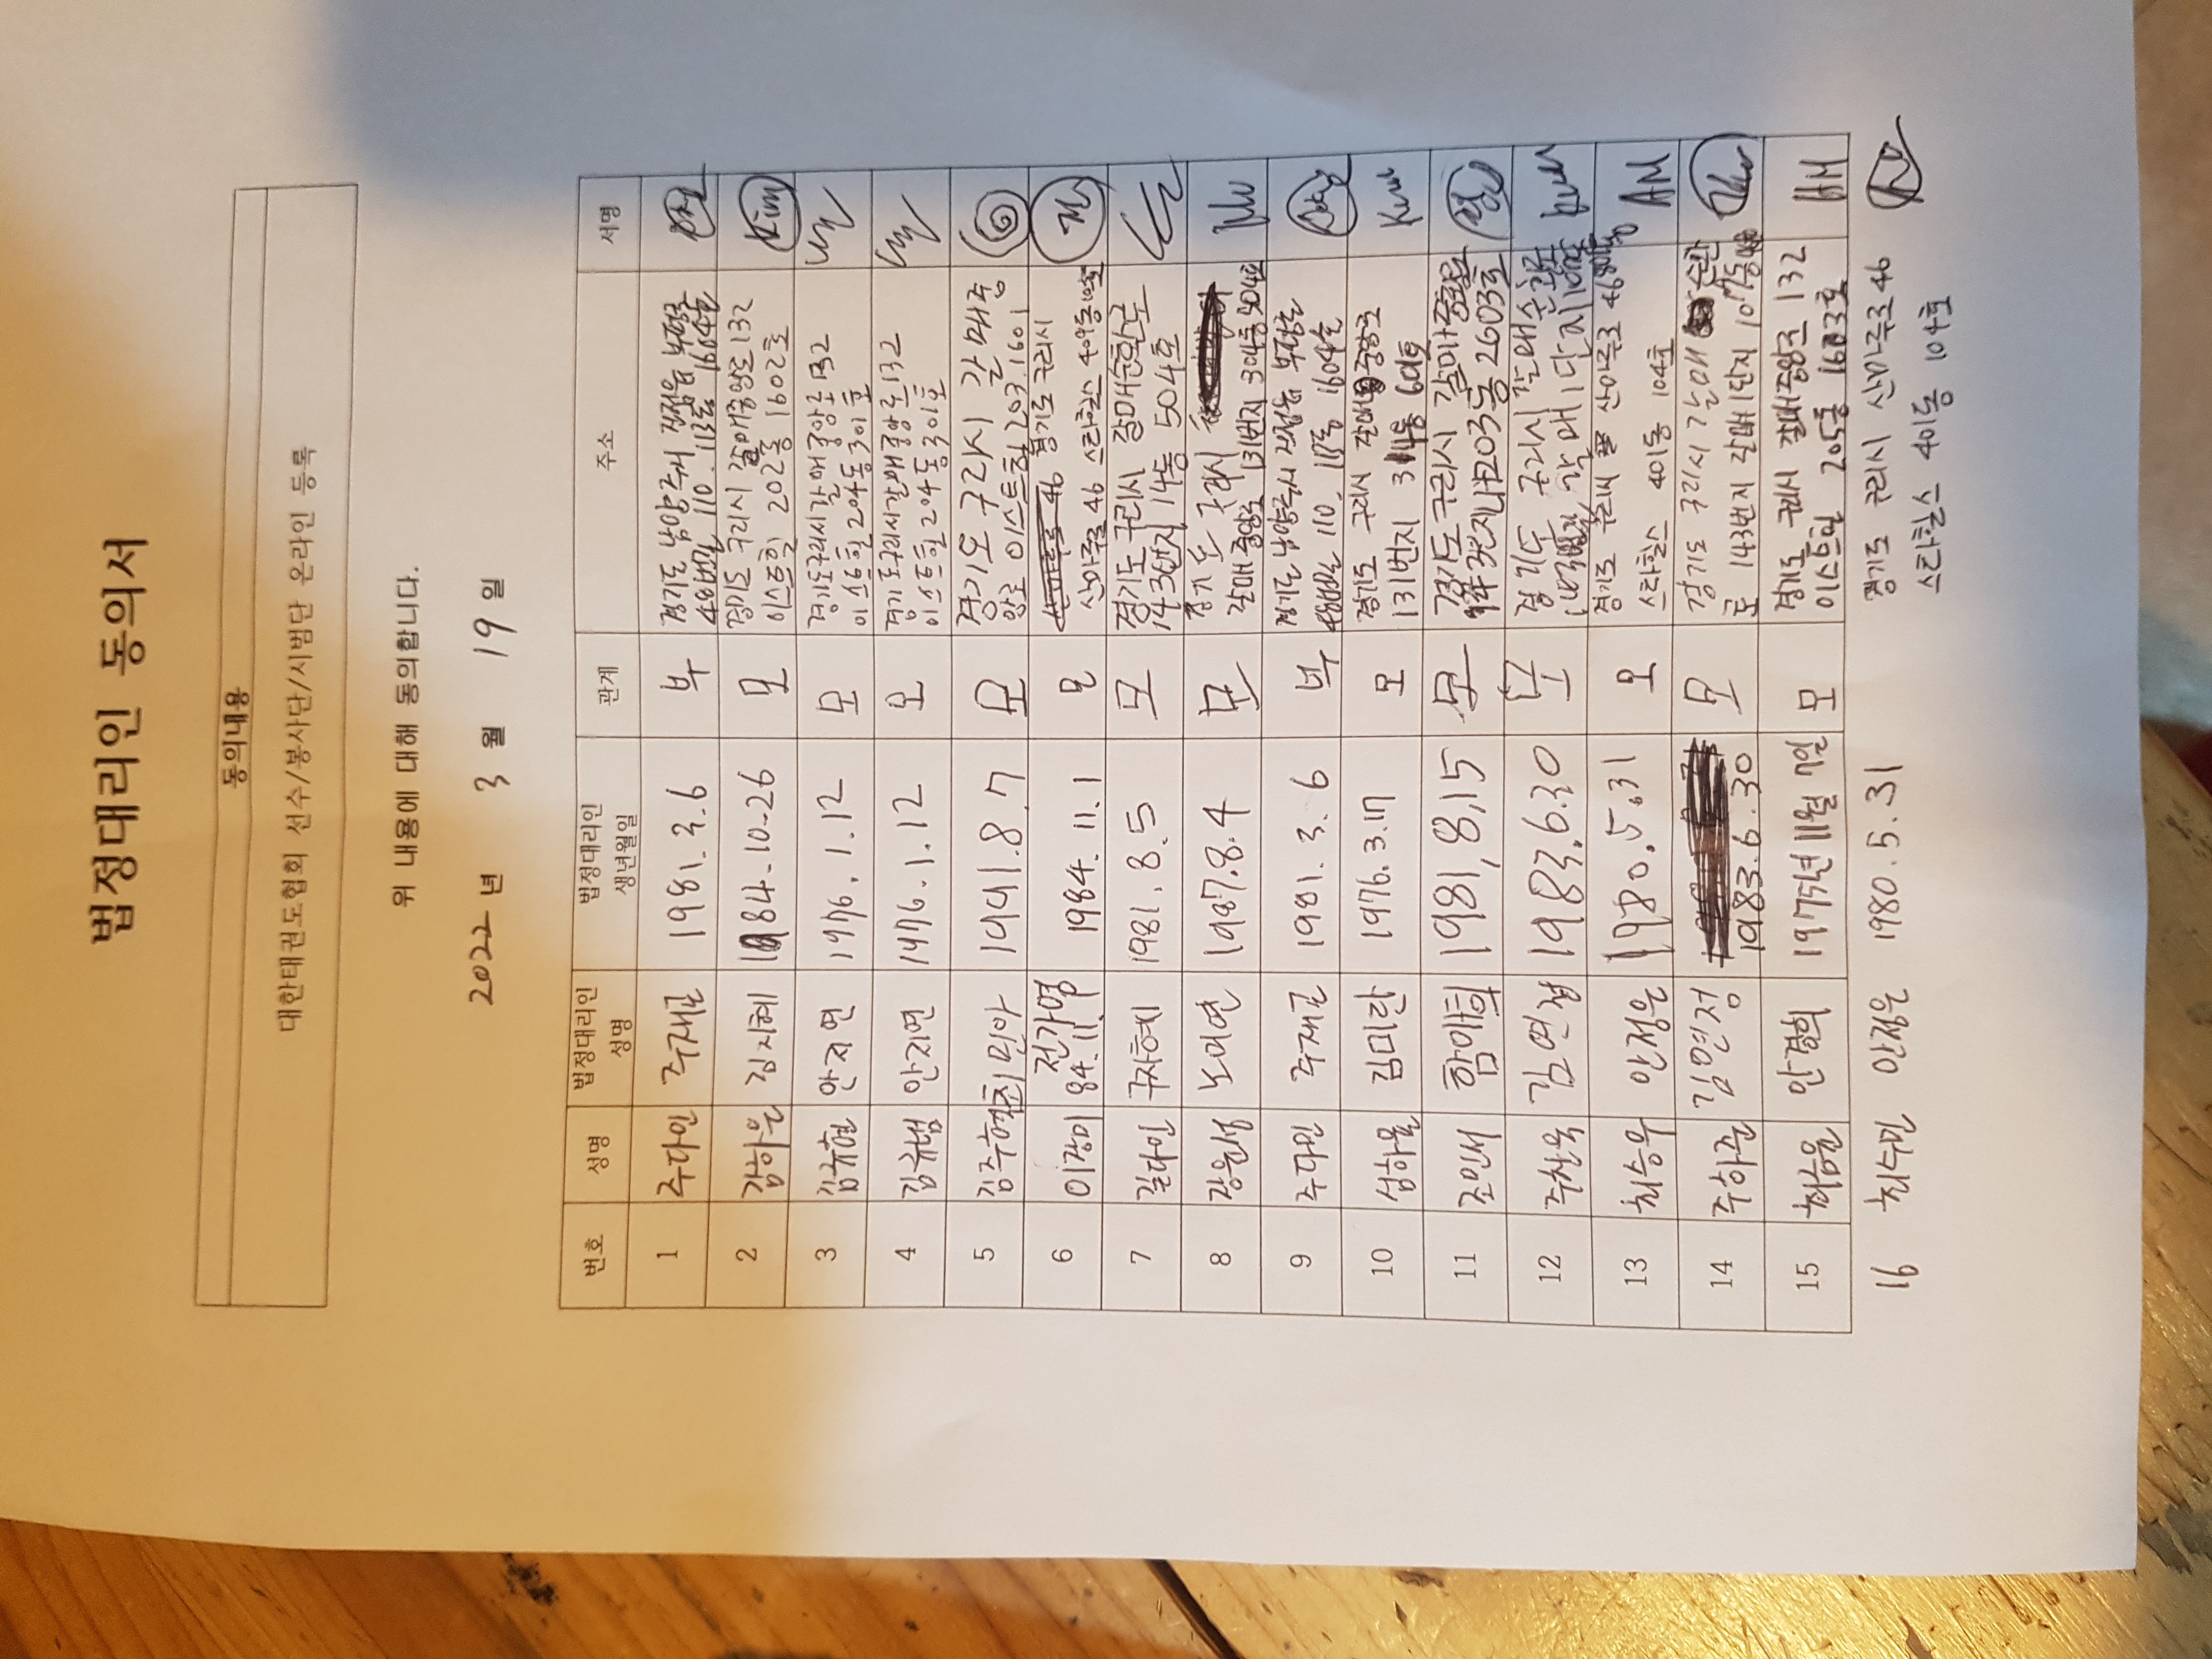 법정대리인 동의서
동의내용
대한태권도협회 선수/봉사단/시범단 온라인 등록
위 내용에 대해 동의합니다.
2022 년 3 월 19 일
번호 성명 법정대리인 성명 법정대리인 생년월일 관계 주소 서명
1 주다인 주재근 1981.3.6 부 경기도 남양주시 진접읍 부평로
48번길 110. 113동 1604호
2 김하은 김지혜 1984-10-26 모 경기도 구리시 갈매중앙로 132
이스트힐 202동 1602호 Kim
3 김규현 안지연 1976.1.12 모 경기도 구리시 갈매중앙로 132
이스트힐 204동 301호
4 안지연 1976.1.12 모 경기도 구리시 갈매중앙로 132
이스트힐 204동 301호
5 최민아 1991.8.7 모 경기도 구리시 갈매중
앙로 이스트힐 203.1601
6 이장미 전가영 84.11.1 1984.11.1 모 경기도 구리시
산마루로 46 스타힐스 409동
7 길다인 구자혜 1981.8.5 모 경기도 구리시 갈매순환로
143번지 114동 504호
8 장윤성 노여연 1987.8.4 모 경기도 구리시
갈매중앙로 131번지 304동 904호
9 주다민 주재근 1981.3.6 부 경기도 남양주시 진접읍 부평로
48번길 110. 113동 1604호
10 섭하율 김미란 1976.3.17 모 경기도 구리시 갈매중앙로
131번지 311동 601호
11 조민서 함미희 1981,8,15 모 경기도 구리시 갈매중앙로
203동 2603호
12 주찬욱 김연정 1983.6.30 모 경기도 구리시 갈매순환로
갈매1단지
13 최승우 안정은 1980.5.31 모 경기도 구리시 산마루로 46
스타힐스 401동 104호 AM
14 주하준 김연정 1983.6.30 모 경기도 구리시 갈매순환
로 143번지 갈매1단지 107동
15 안결희 1975년 11월 7일 모 경기도 구리시 갈매중앙로 132
이스트힐 205동 1603호
16 최수민 안정은 1980.5.31 경기도 구리시 산마루로 46
스타힐스 401동 104호